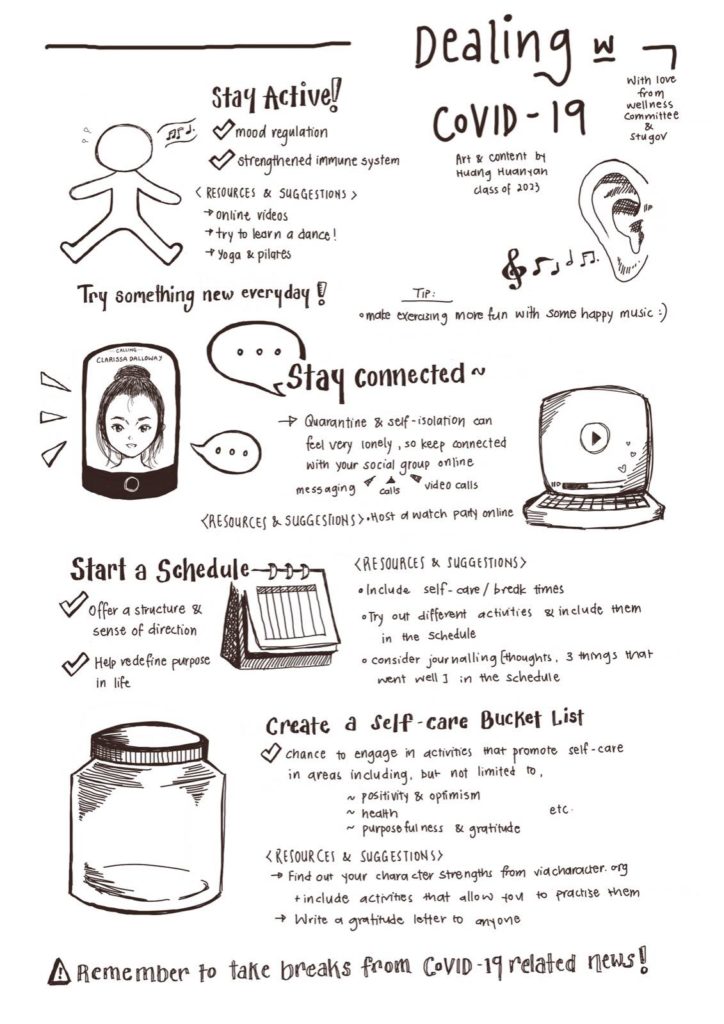 Dealing w
COVID-19
With love
from
wellness
Committee
&
StuGov
Art & content by
Huang Huanyan
class of 2023
Stay Active!
mood regulation
strengthened immune system
<RESOURCES & SUGGESTIONS>
→ online videos
→ try to learn a dance!
→ yoga & pilates
Try something new everyday!
Tip:
• make exercising more fun with some happy music :)
CALLING...
CLARISSA DALLOWAY
Stay connected ~
→ Quarantine & self-isolation can
feel very lonely, so keep connected
with your social group online
messaging calls video calls
<RESOURCES & SUGGESTIONS> • Host a watch party online
Start a Schedule
Offer a structure &
sense of direction
Help redefine purpose
in life
<RESOURCES & SUGGESTIONS>
• Include self-care / break times
• Try out different activities & include them
in the schedule
• consider journalling [thoughts, 3 things that
went well] in the schedule
Create a Self-care Bucket List
chance to engage in activities that promote self-care
in areas including, but not limited to,
~ positivity & optimism
~ health etc.
~ purposefulness & gratitude
<RESOURCES & SUGGESTIONS>
→ Find out your character strengths from viacharacter.org
+ include activities that allow you to practise them
→ Write a gratitude letter to anyone
Remember to take breaks from COVID-19 related news!